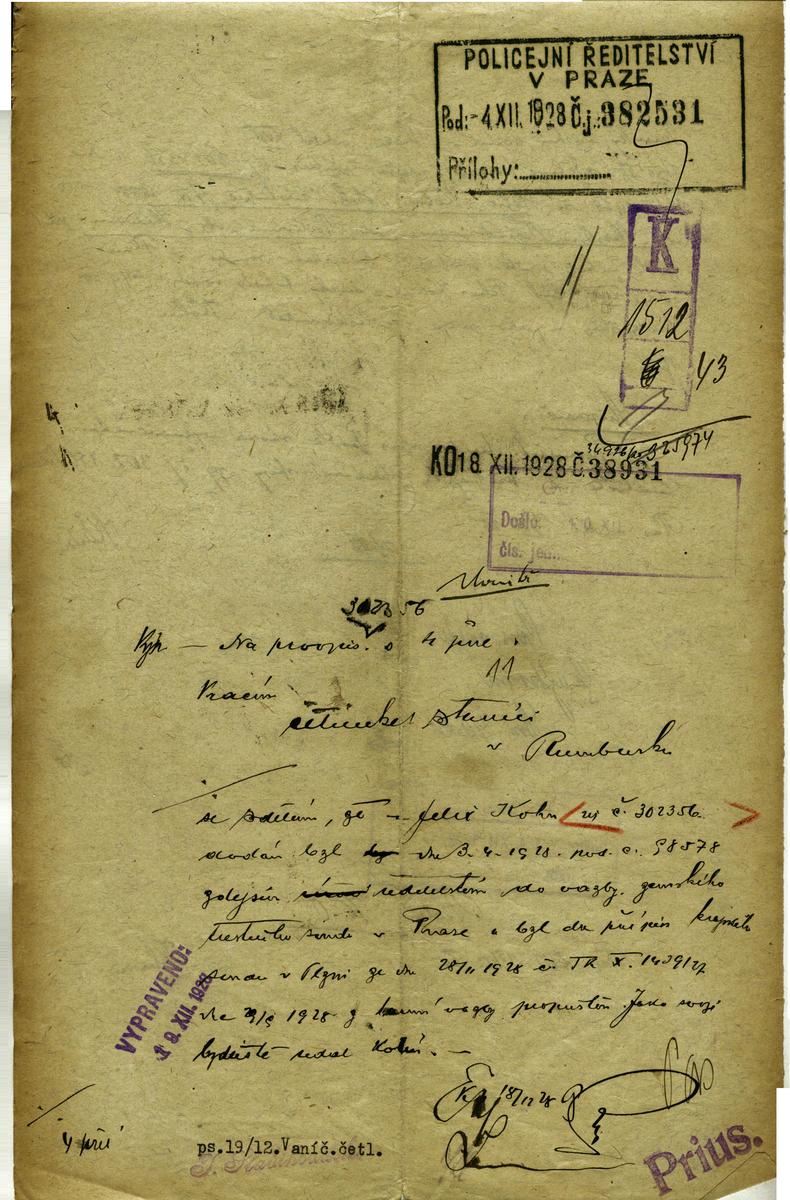 POLICEJNÍ ŘEDITELSTVÍ
V PRAZE
Pod: -4 XII. 1928 Č.j.: 382531
Přílohy:
K
1512
43
KO 18. XII. 1928 Č. 38931
Došlo:
čís. jedn.
302356
Na 4 příl.
11
Vracím
četnické stanici
v Rumburku
se sdělením, že Felix Kohn č. 302356
dodán byl dne 3.4.1928. pod. č. 98578
zdejším ředitelstvím do vazby zemského
trestního soudu v Praze a byl dle přípisu krajského
soudu v Plzni ze dne 28/11 1928 č. Tk X. 1409/27
dne 1928 z vazby propuštěn. Jako svoje
bydliště udal Kolín. —
VYPRAVENO:
19. XII. 1928
18/12 28
4 příl
ps.19/12.Vaníč.četl.
Prius.